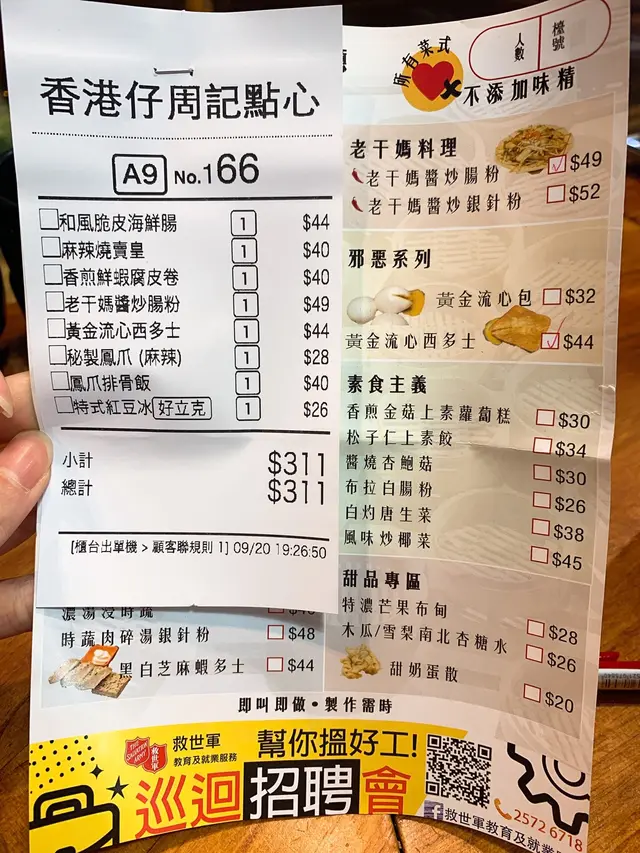 香港仔周記點心
A9 No.166
和風脆皮海鮮腸 1 $44
麻辣燒賣皇 1 $40
香煎鮮蝦腐皮卷 1 $40
老干媽醬炒腸粉 1 $49
黃金流心西多士 1 $44
秘製鳳爪 (麻辣) 1 $28
鳳爪排骨飯 1 $40
特式紅豆冰 好立克 1 $26
小計 $311
總計 $311
[櫃台出單機 > 顧客聯規則 1] 09/20 19:26:50
所有菜式
不添加味精
人數
檯號
老干媽料理
老干媽醬炒腸粉 $49
老干媽醬炒銀針粉 $52
邪惡系列
黃金流心包 $32
黃金流心西多士 $44
素食主義
香煎金菇上素蘿蔔糕 $30
松子仁上素餃 $34
醬燒杏鮑菇 $30
布拉白腸粉 $26
白灼唐生菜 $38
風味炒椰菜 $45
甜品專區
特濃芒果布甸 $28
木瓜/雪梨南北杏糖水 $26
甜奶蛋散 $20
濃湯浸時蔬
時蔬肉碎湯銀針粉 $48
黑白芝麻蝦多士 $44
即叫即做•製作需時
THE SALVATION ARMY
救世軍
救世軍
教育及就業服務
幫你搵好工!
巡迴招聘會
2572 6718
救世軍教育及就業